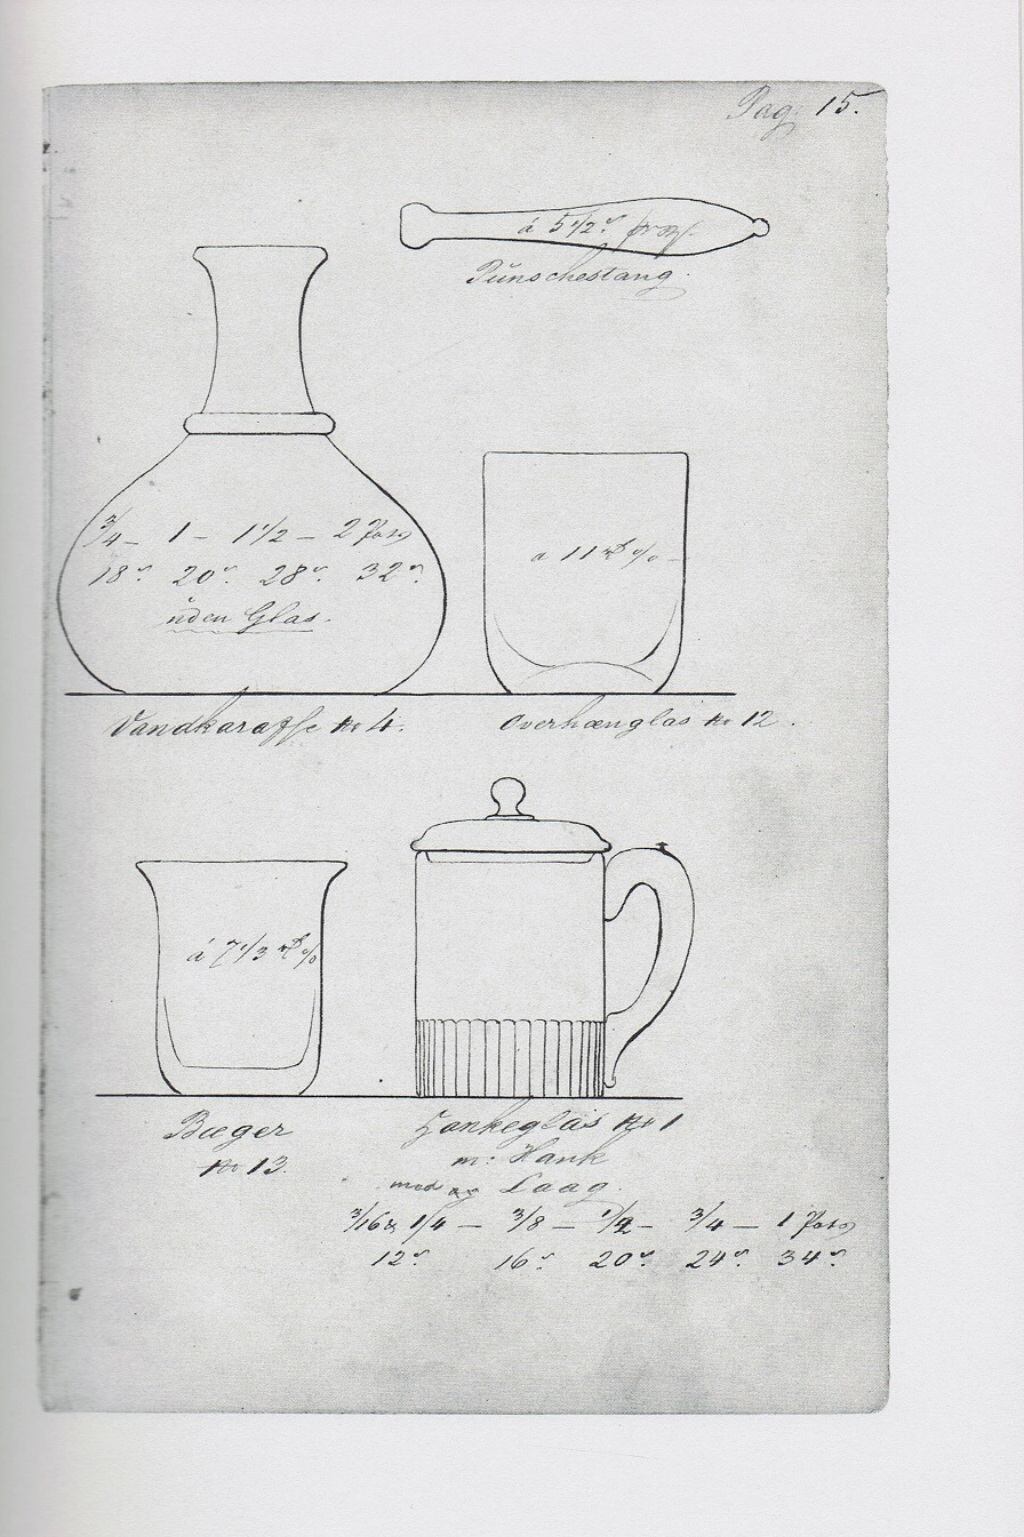 Pag: 15.
á 5 1/2
Punschestang.
3/4 – 1 – 1 1/2 – 2 Pots
18 20 28 32
uden Glas.
a 11 %
Vandkaraffe No 4.
Overhænglas No 12.
á 7 1/3 %
Bæger
No 13.
Hankeglas No 1
m: Hank
med og Laag.
3/16 & 1/4 – 3/8 – 1/2 – 3/4 – 1 Pots
12 16 20 24 34